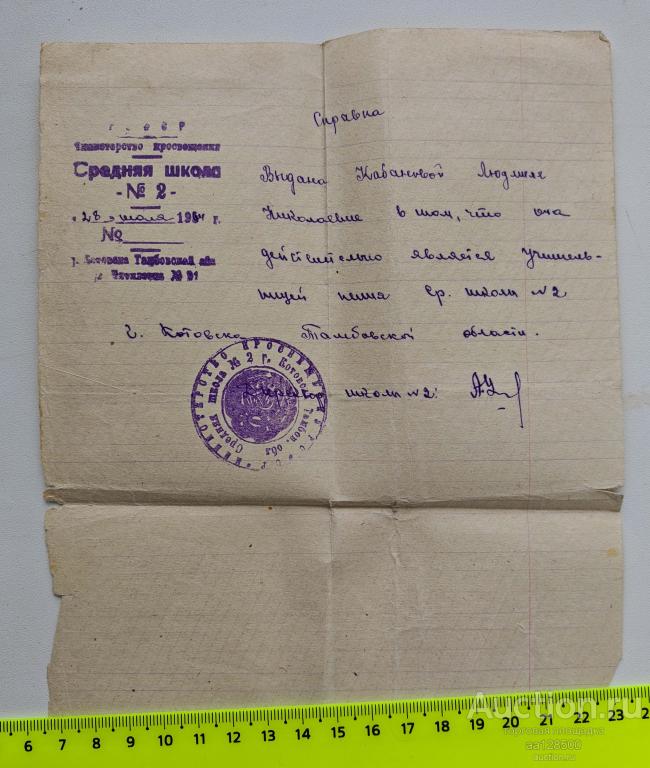 Р.С.Ф.С.Р
Министерство просвещения
Средняя школа
- № 2 -
"28" июля 1954 г.
№
г. Котовска Тамбовской обл
№ 21
Справка
Выдана Кабановой Людмиле
Николаевне в том, что она
действительно является учитель-
ницей нач. ср. школы №2
г. Котовска Тамбовской области.
Директор школы №2:
МИНИСТЕРСТВО ПРОСВЕЩЕНИЯ Р.С.Ф.С.Р
Средняя школа № 2 г. Котовск Тамбов. обл
6 7 8 9 10 11 12 13 14 15 16 17 18 19 20 21 22 23
Auction.ru
торговая площадка
aa128600
auction.ru